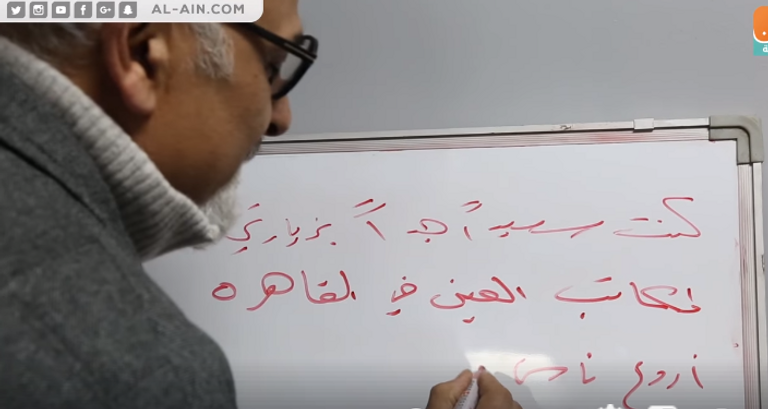 AL-AIN.COM
كنت سعيداً جداً بزيارتي
لمكاتب العين في القاهره
أروع ناس